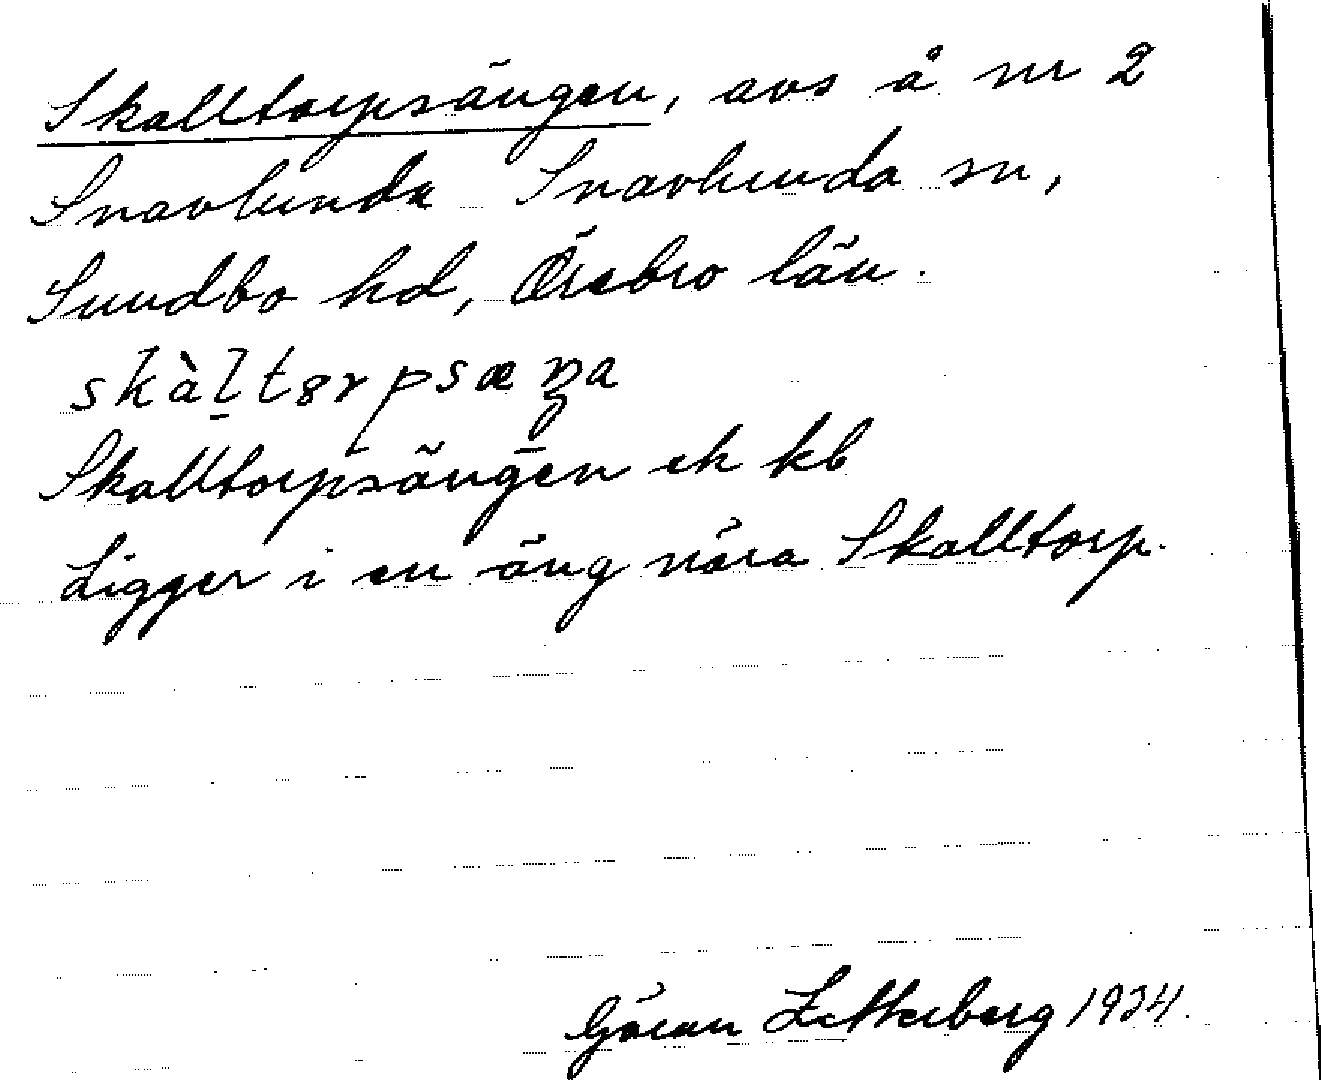 Skalltorpsängen, avs å nr 2
Snavlunda Snavlunda sn,
Sundbo hd, Örebro län.
skàlt𝑜rpsæŋa
Skalltorpsängen ek kb
Ligger i en äng nära Skalltorp.
Göran Zetterberg 1934.